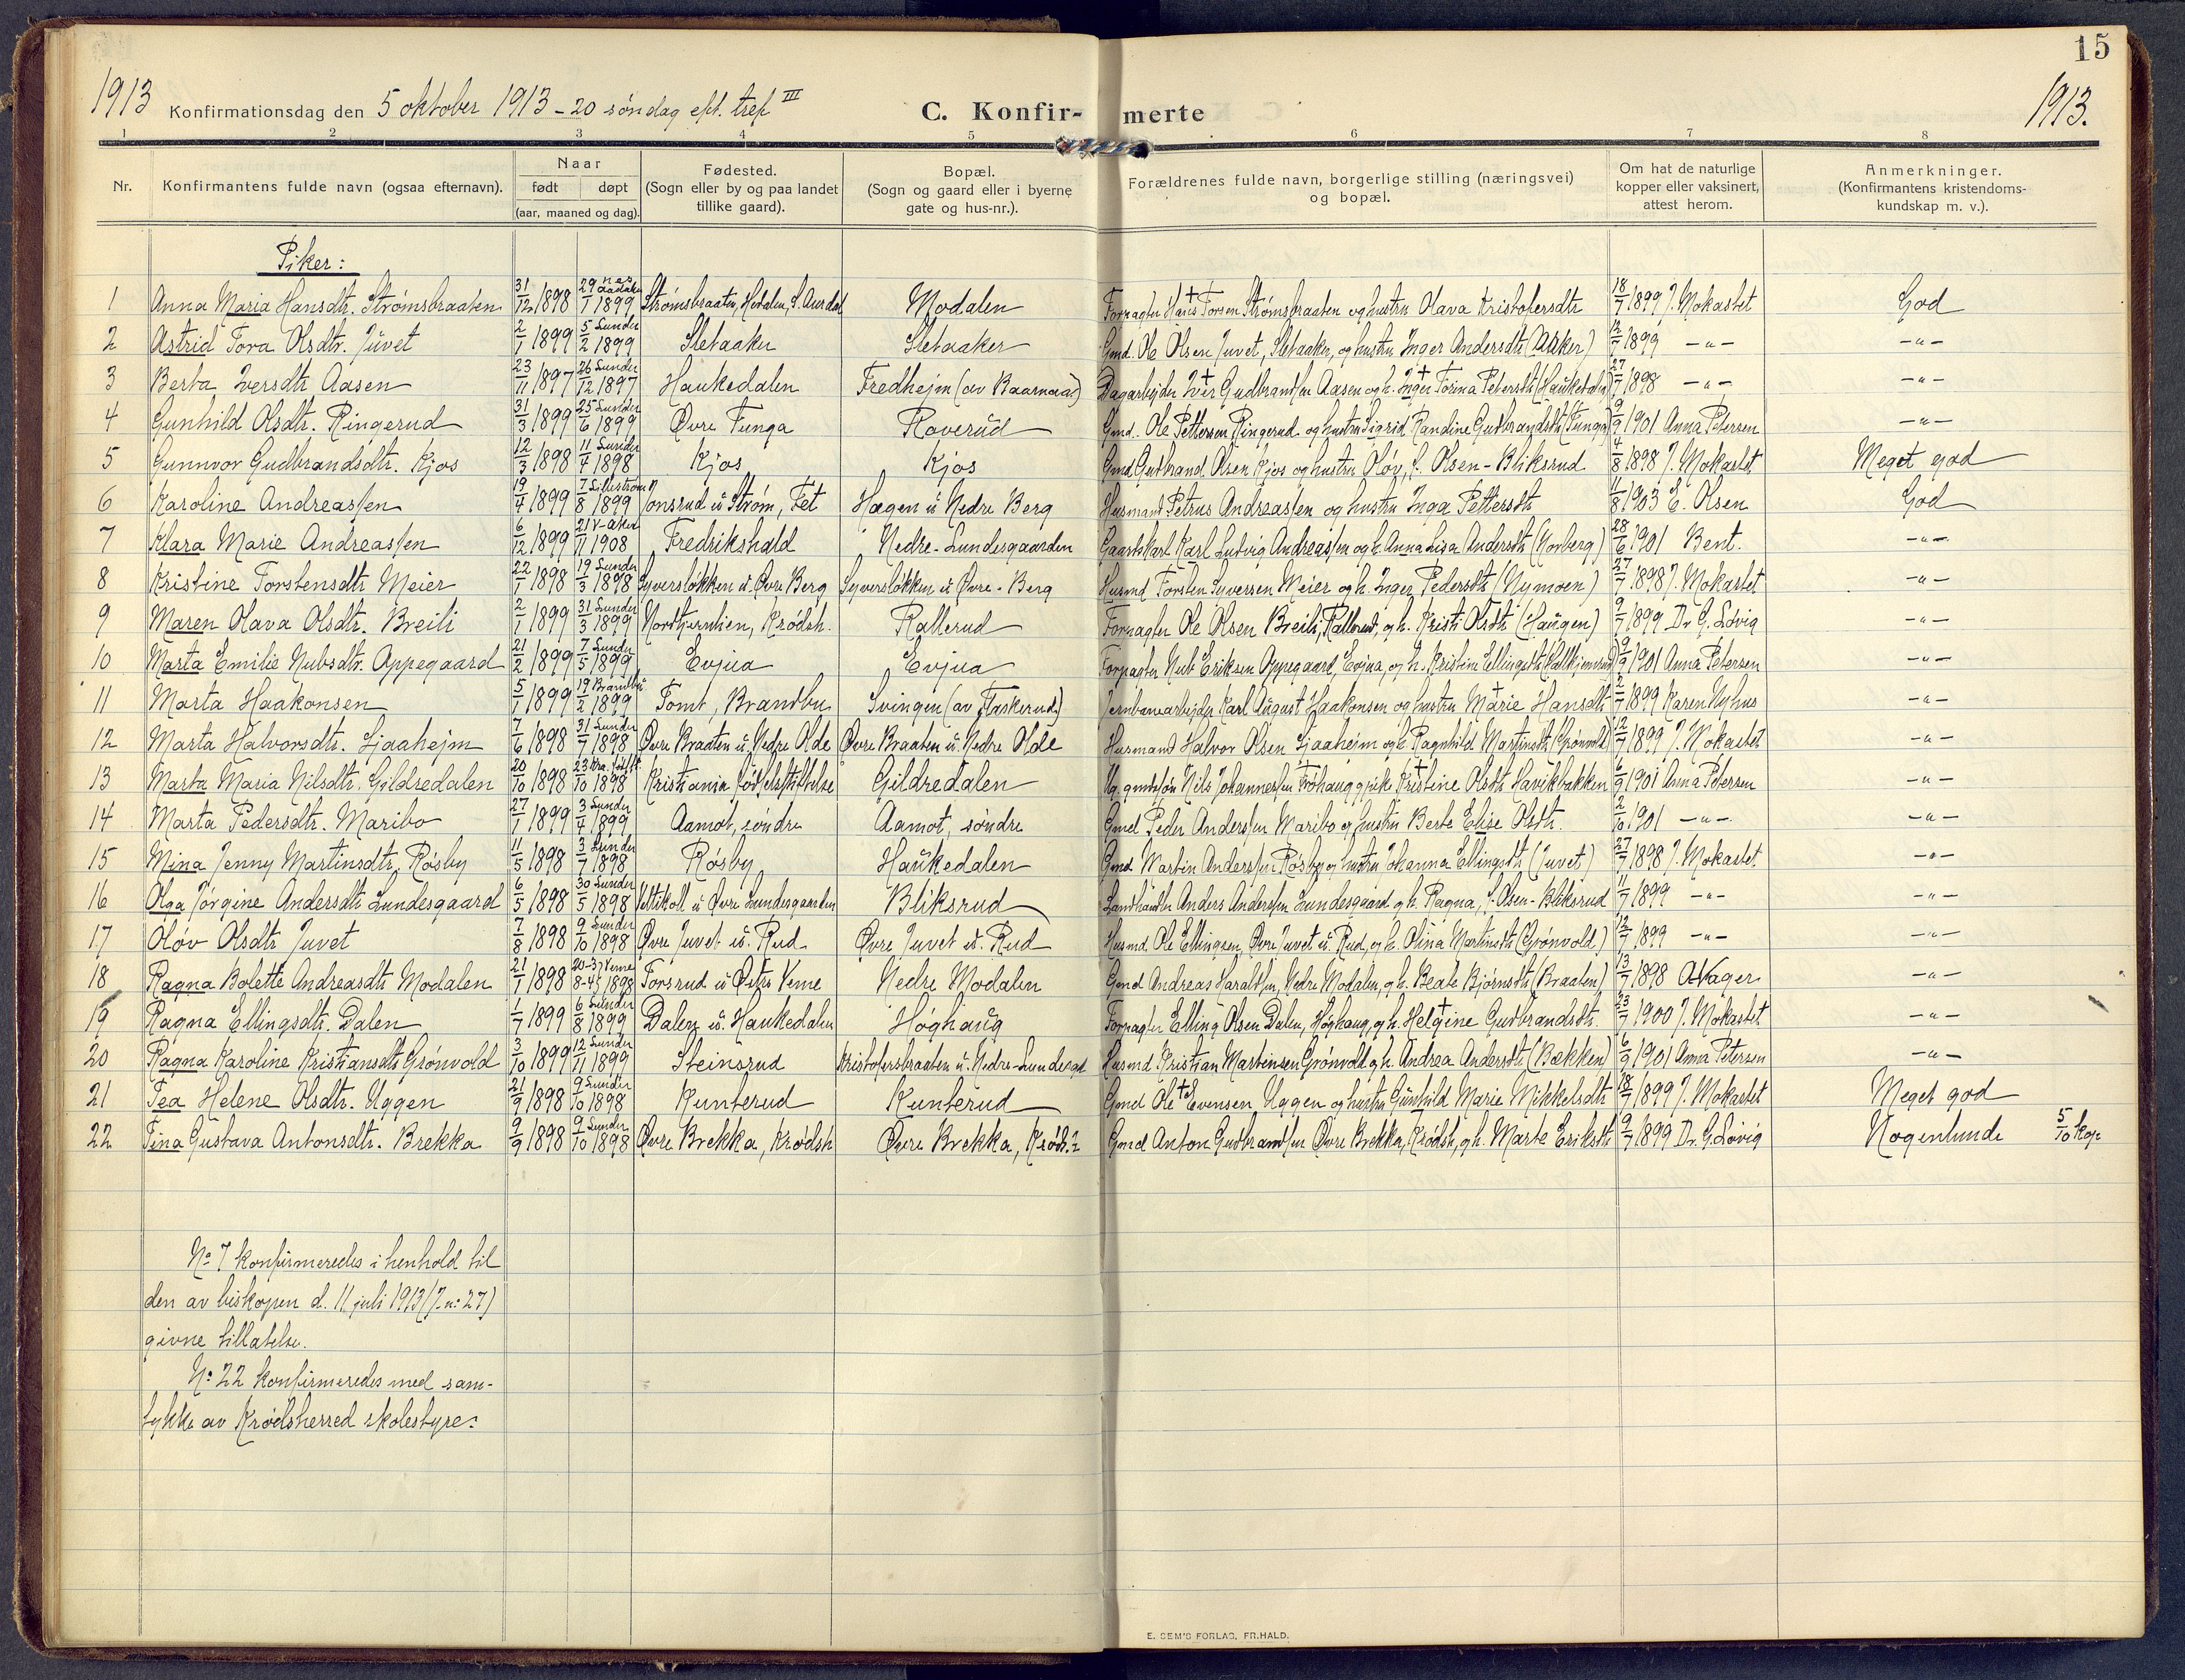 15
1913 Konfirmationsdag den 5 oktober 1913 - 20 søndag eft. tref III C. Konfir- merte 1913.
1 2 3 4 5 6 7 8
Nr. Konfirmantens fulde navn (ogsaa efternavn). Naar født døpt (aar, maaned og dag). Fødested. (Sogn eller by og paa landet tillike gaard). Bopæl. (Sogn og gaard eller i byerne gate og hus-nr.). Forældrenes fulde navn, borgerlige stilling (næringsvei) og bopæl. Om hat de naturlige kopper eller vaksinert, attest herom. Anmerkninger. (Konfirmantens kristendoms- kundskap m. v.).
Piker:
1 Anna Maria Hansdtr. Strømsbraaten 31/12 1898 29/1 1899 Strømsbraaten, Hedalen, S. Aurdal Modalen Forpagter Hans † Torsen Strømsbraaten og hustru Olava Kristofersdtr 18/7 1899 J. Mokastet God
2 Astrid Tora Olsdtr. Juvet 2/1 1899 5/2 Sunder 1899 Sletaaker Sletaaker Gmd. Ole Olsen Juvet, Sletaaker, og hustru Inger Andersdtr (Aaker) 12/7 1899 -"- -"-
3 Berta Iversdtr Aasen 23/11 1897 26/12 Sunder 1897 Haukedalen Fredhejm (av Baarnaas) Dagarbejder Iver † Gudbrandsen Aasen og h. Inger † Torina Petersdtr (Haukedalen) 27/7 1898 -"- -"-
4 Gunhild Olsdtr. Ringerud 31/3 1899 25/6 Sunder 1899 Øvre Tunga Roverud Gmd. Ole Pettersen Ringerud og hustru Sigrid Randine Gudbrandsdtr (Tunga) 9/9 1901 Anna Petersen -"-
5 Gunnvor Gudbrandsdtr. Kjos 12/3 1898 11/4 Sunder 1898 Kjos Kjos Gmd. Gudbrand Olsen Kjos og hustru Oløv, f. Olsen-Bliksrud 4/8 1898 J. Mokastet Meget god
6 Karoline Andreassen 19/4 1899 7/8 Lillestrøm 1899 Jonsrud u. Strøm, Fet Hagen u. Nedre Berg Husmand Petrus Andreassen og hustru Inga Pettersdtr 11/8 1903 E. Olsen God
7 Klara Marie Andreassen 6/12 1899 21/11 V-aker 1908 Fredrikshald Nedre-Lundesgaarden Gaardskarl Karl Ludvig Andreassen og h. Anna Lisa Andersdtr (Norberg) 28/6 1901 Bent. -"-
8 Kristine Torstensdtr Meier 22/1 1898 19/3 Sunder 1898 Syversløkken u. Øvre Berg Syversløkken u. Øvre-Berg Husmd Torsten Syversen Meier og h. Inger Pedersdtr (Nymoen) 27/7 1898 J. Mokastet -"-
9 Maren Olava Olsdtr. Breili 2/1 1899 31/3 Sunder 1899 Nordtjernlien, Krødsh. Rallerud Forpagter Ole Olsen Breili, Rallerud, og h. Kristi Olsdtr (Haugen) 9/7 1899 Dr. G. Løvig -"-
10 Marta Emilie Nubsdtr. Oppegaard 21/2 1899 7/5 Sunder 1899 Evjua Evjua Forpagter Nub Eriksen Oppegaard, Evjua, og h. Kristine Ellingsdtr 9/9 1901 Anna Petersen -"-
11 Marta Haakonsen 5/1 1899 19/2 Brandbu 1899 Tomt, Brandbu Svingen (av Flaskerud) Jernbanearbejder Karl August Haakonsen og hustru Marie † Hansdtr 2/7 1899 Karen Nyhus -"-
12 Marta Halvorsdtr. Sjaahejm 7/6 1898 31/7 Sunder 1898 Øvre Braaten u. Nedre Olde Øvre Braaten u. Nedre Olde Husmand Halvor Olsen Sjaaheim og h. Ragnhild Martinsdtr (Grønvold) 12/7 1899 J. Mokastet -"-
13 Marta Maria Nilsdtr. Gildredalen 20/10 1898 23/10 1898 Kristiania fødselsstiftelse Gildredalen Ug. gmdsøn Nils Johannessen Frøhaug og pike Kristine Olsdtr Havikbakken 6/9 1901 Anna Petersen -"-
14 Marta Pedersdtr. Maribo 27/1 1899 3/4 Sunder 1899 Aamot, søndre Aamot, søndre Gmd Peder Anderssen Maribo og hustru Berte Elise Olsdtr. 2/10 1901 -"- -"-
15 Mina Jenny Martinsdtr. Røsby 11/5 1898 3/7 Sunder 1898 Røsby Haukedalen Gmd. Martin Anderssen Røsby og hustru Johanna Ellingsdtr (Juvet) 27/7 1898 J. Mokastet -"-
16 Olga Jørgine Andersdtr Lundesgaard 6/5 1898 30/5 Sunder 1898 Veltikolt u. Øvre Lundesgaarden Bliksrud Landhandler Anders Anderssen Lundesgaard og h. Ragna, f. Olsen-Bliksrud 11/7 1899 -"- -"-
17 Oløv Olsdtr Juvet 7/8 1898 9/10 Sunder 1898 Øvre Juvet u. Rud Øvre Juvet u. Rud Husmd. Ole Ellingsen, Øvre Juvet u. Rud, og h. Olina Martinsdtr (Grønvold) 12/7 1899 -"- -"-
18 Ragna Bolette Andreasdtr Modalen 21/1 1898 20-3 / 8-4 Veme 1898 Torsrud u. Østre Veme Nedre Modalen Gmd Andreas Haraldsen, Nedre Modalen, og h. Beate Bjørnsdtr (Braaten) 13/7 1898 A. Nager -"-
19 Ragna Ellingsdtr. Dalen 1/7 1899 6/8 Sunder 1899 Dalen u. Haukedalen Høghaug Forpagter Elling Olsen Dalen, Høghaug, og h. Helgine † Gudbrandsdtr. 23/7 1900 J. Mokastet -"-
20 Ragna Karoline Kristiansdtr Grønvold 3/10 1899 12/11 Sunder 1899 Steinsrud Kristofersbraaten u. Nedre-Lundesgd Husmd Kristian Martinsen Grønvold og h. Andrea Andersdtr (Bækken) 6/9 1901 Anna Petersen -"-
21 Tea Helene Olsdtr. Uggen 21/9 1898 9/10 Sunder 1898 Kunterud Kunterud Gmd Ole † Evensen Uggen og hustru Gunhild Marie Mikkelsdtr 18/7 1899 J. Mokastet Meget god
22 Tina Gustava Antonsdtr. Brekka 9/9 1898 9/10 Sunder 1898 Øvre Brekka, Krødsh Øvre Brekka, Krøds. Gmd Anton Gudbrandsen Øvre Brekka, Krødsh, og h. Marte Eriksdtr 9/7 1899 Dr. G. Løvig Nogenlunde 5/10 kop
No 7 konfirmeredes i henhold til
den av biskopen d. 11 juli 1913 (J. nr 27)
givne tillatelse.
No 22 konfirmeredes med sam-
tykke av Krødsherred skolestyre.
E. SEM'S FORLAG, FR.HALD.